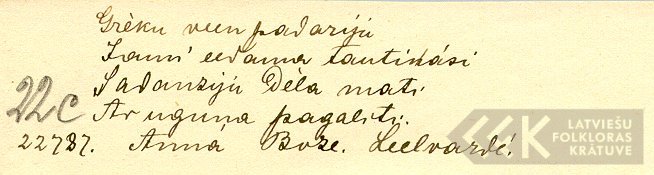 Grēku veen padariju
Jauni eedama tautinâsi
Sadauziju Dēla mati
Ar uguņa pagaliti.
22c
22727. Annâ Boze. Leelvardē.
LATVIEŠU
FOLKLORAS
KRĀTUVE